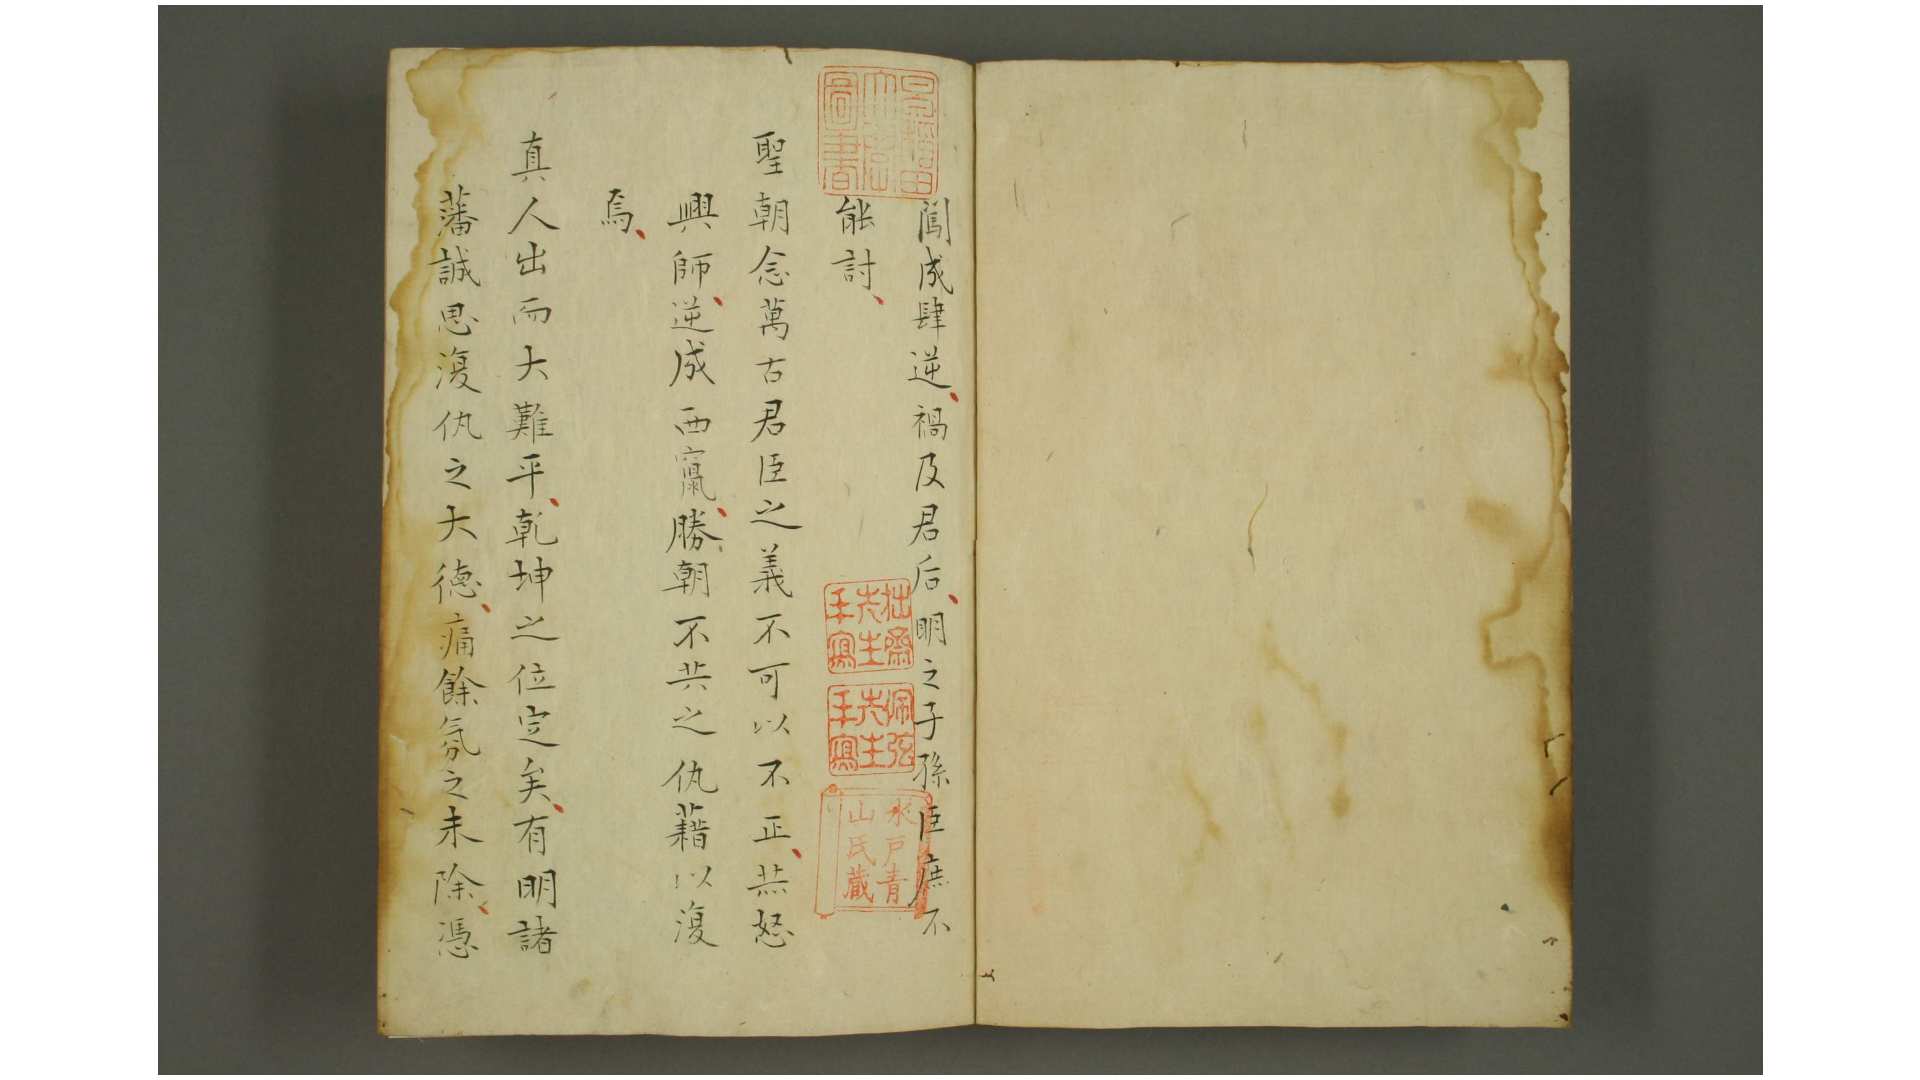 闖成肆逆、禍及君后、明之子孫臣庶不
能討、
聖朝念萬古君臣之義不可以不正、恭怒
興師、逆成西竄、勝朝不共之仇藉以復
焉、
真人出而大難平、乾坤之位定矣、有明諸
藩誠思復仇之大德、痛餘氛之未除、憑
圖書
拙齋
先生
手寫
佩弦
先生
手寫
水戸青
山氏蔵